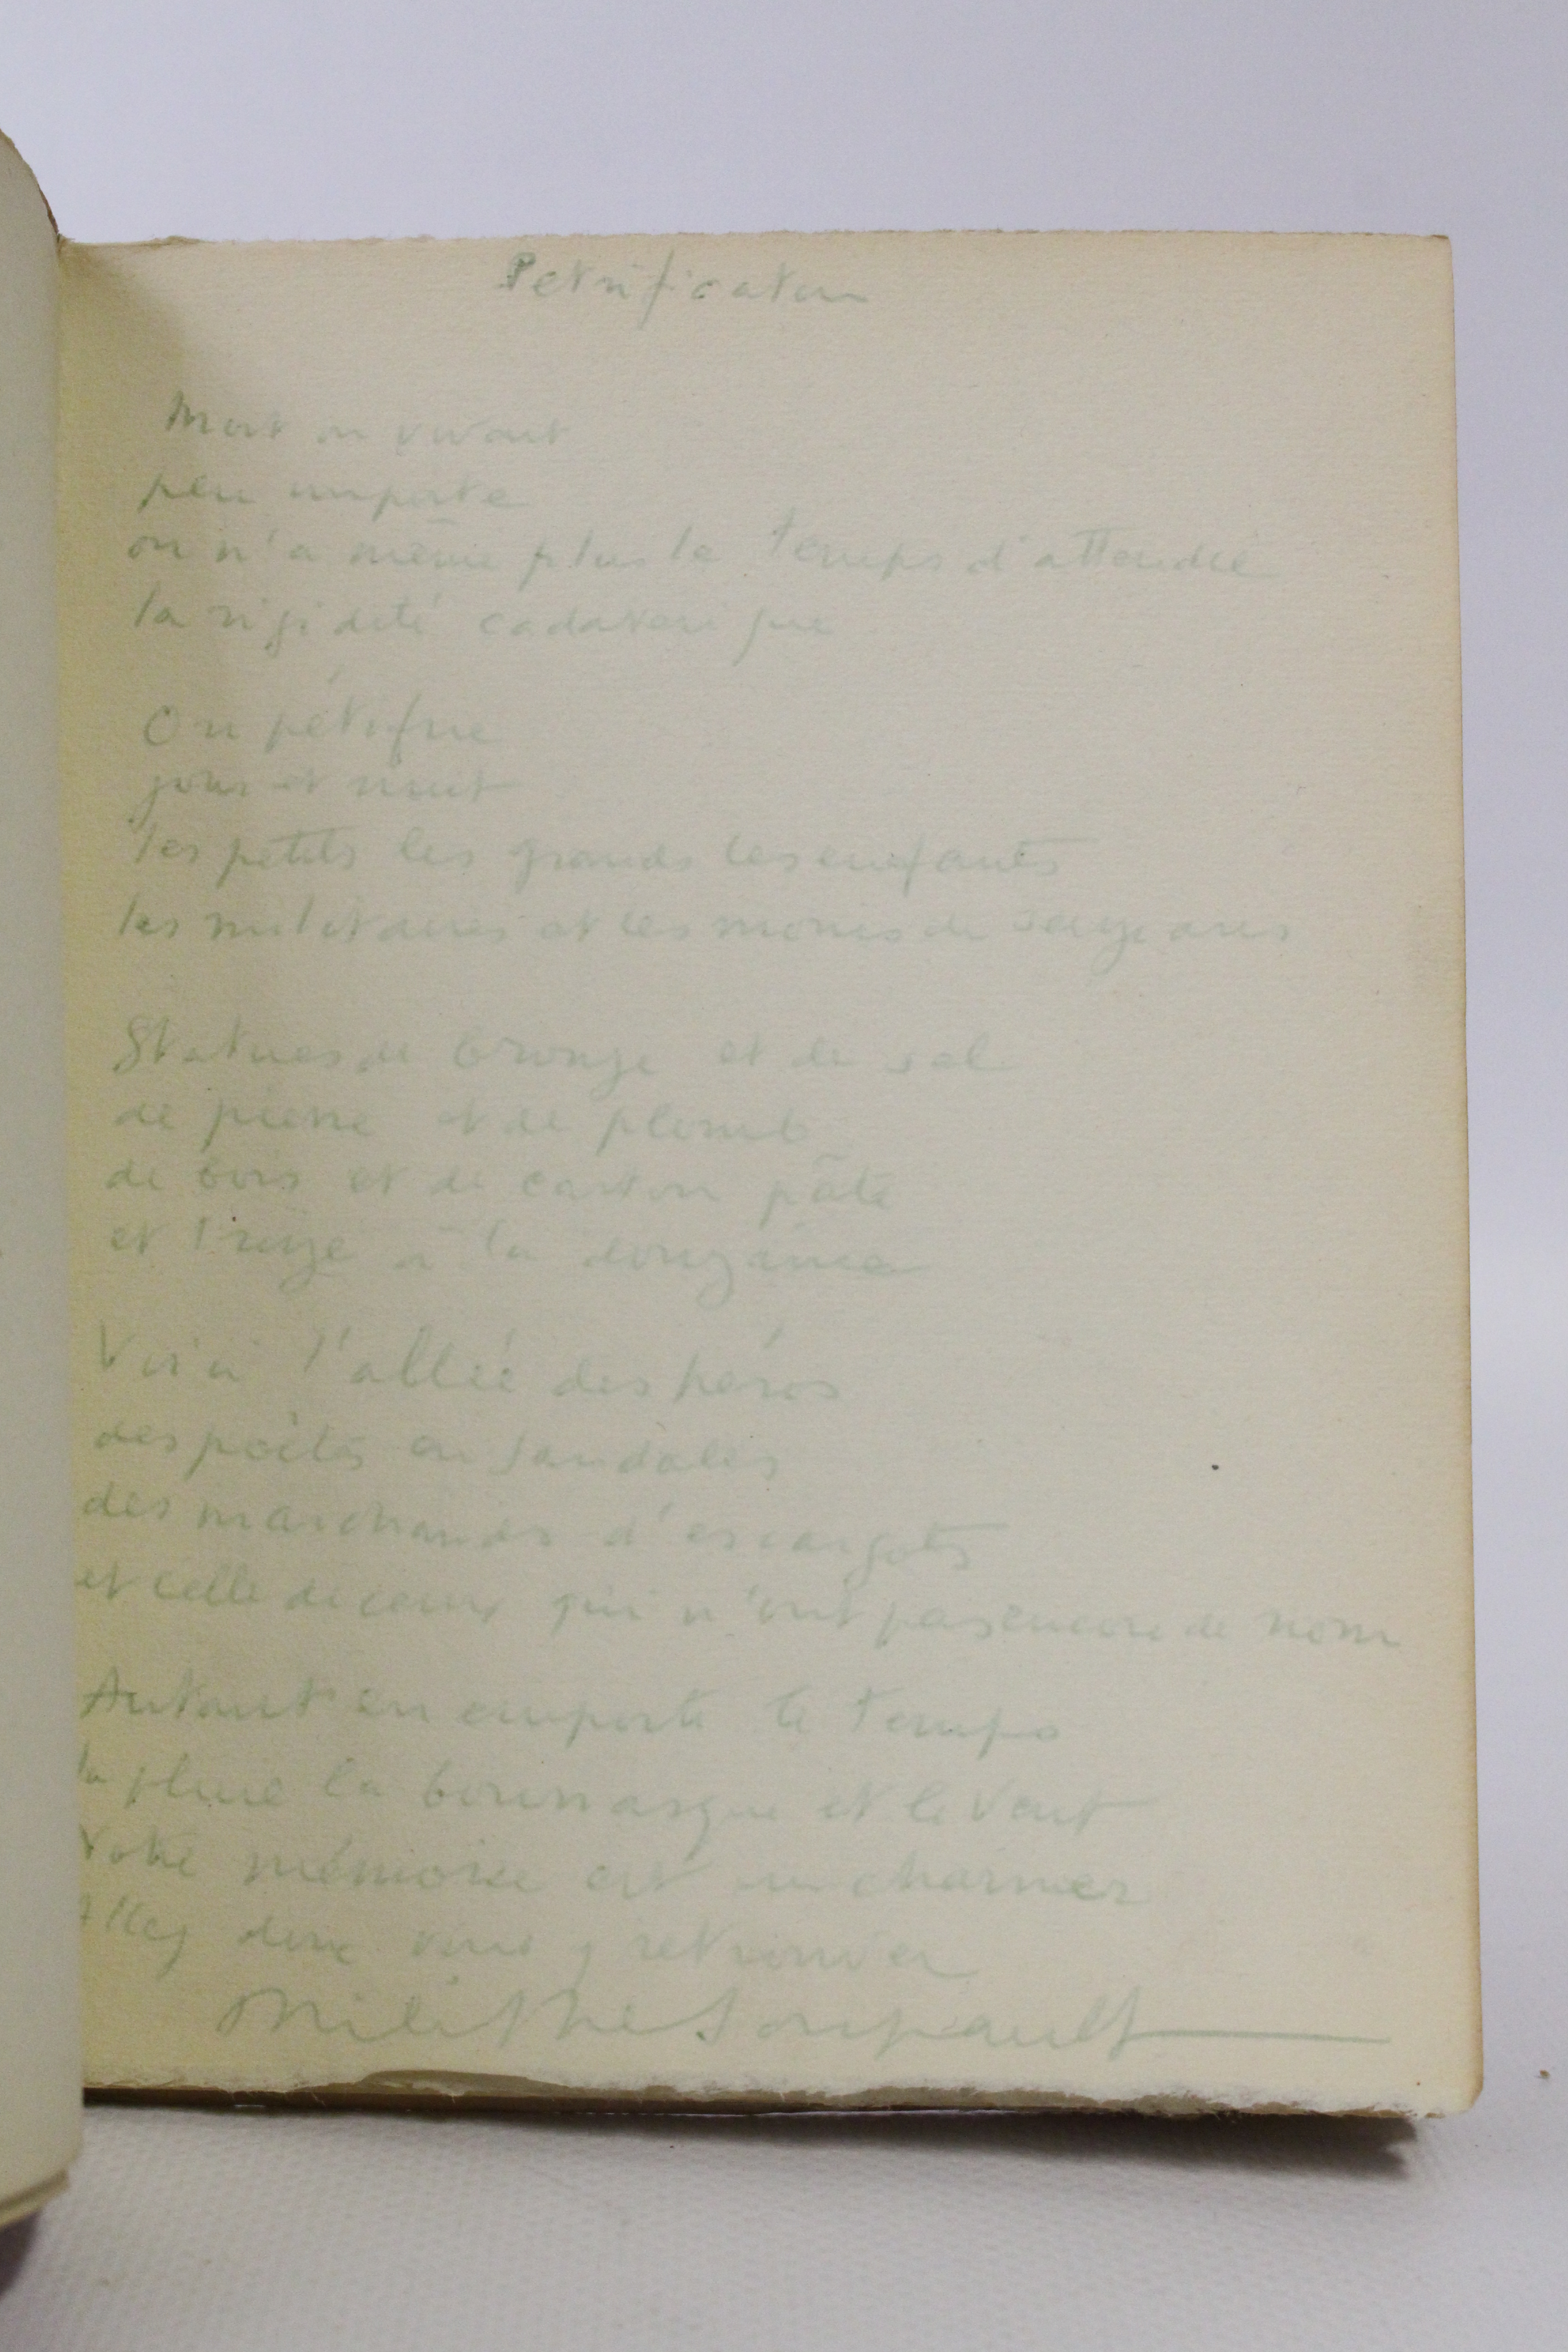 Petrification
Mort ou vivant
peu importe
on n'a même plus le temps d'attendre
la rigidité cadavérique
On pétrifie
jour et nuit
les petits les grands les enfants
les militaires et les moins de seize ans
Statues de bronze et de sel
de pierre et de plomb
de bois et de carton pâte
et treize à la douzaine
Voici l'allée des héros
des poètes en sandales
des marchands d'escargots
et celle de ceux qui n'ont pas encore de nom
Autant en emporte le temps
la pluie la bourrasque et le vent
Votre mémoire est un charnier
Allez donc vous y retrouver
Philippe Soupault